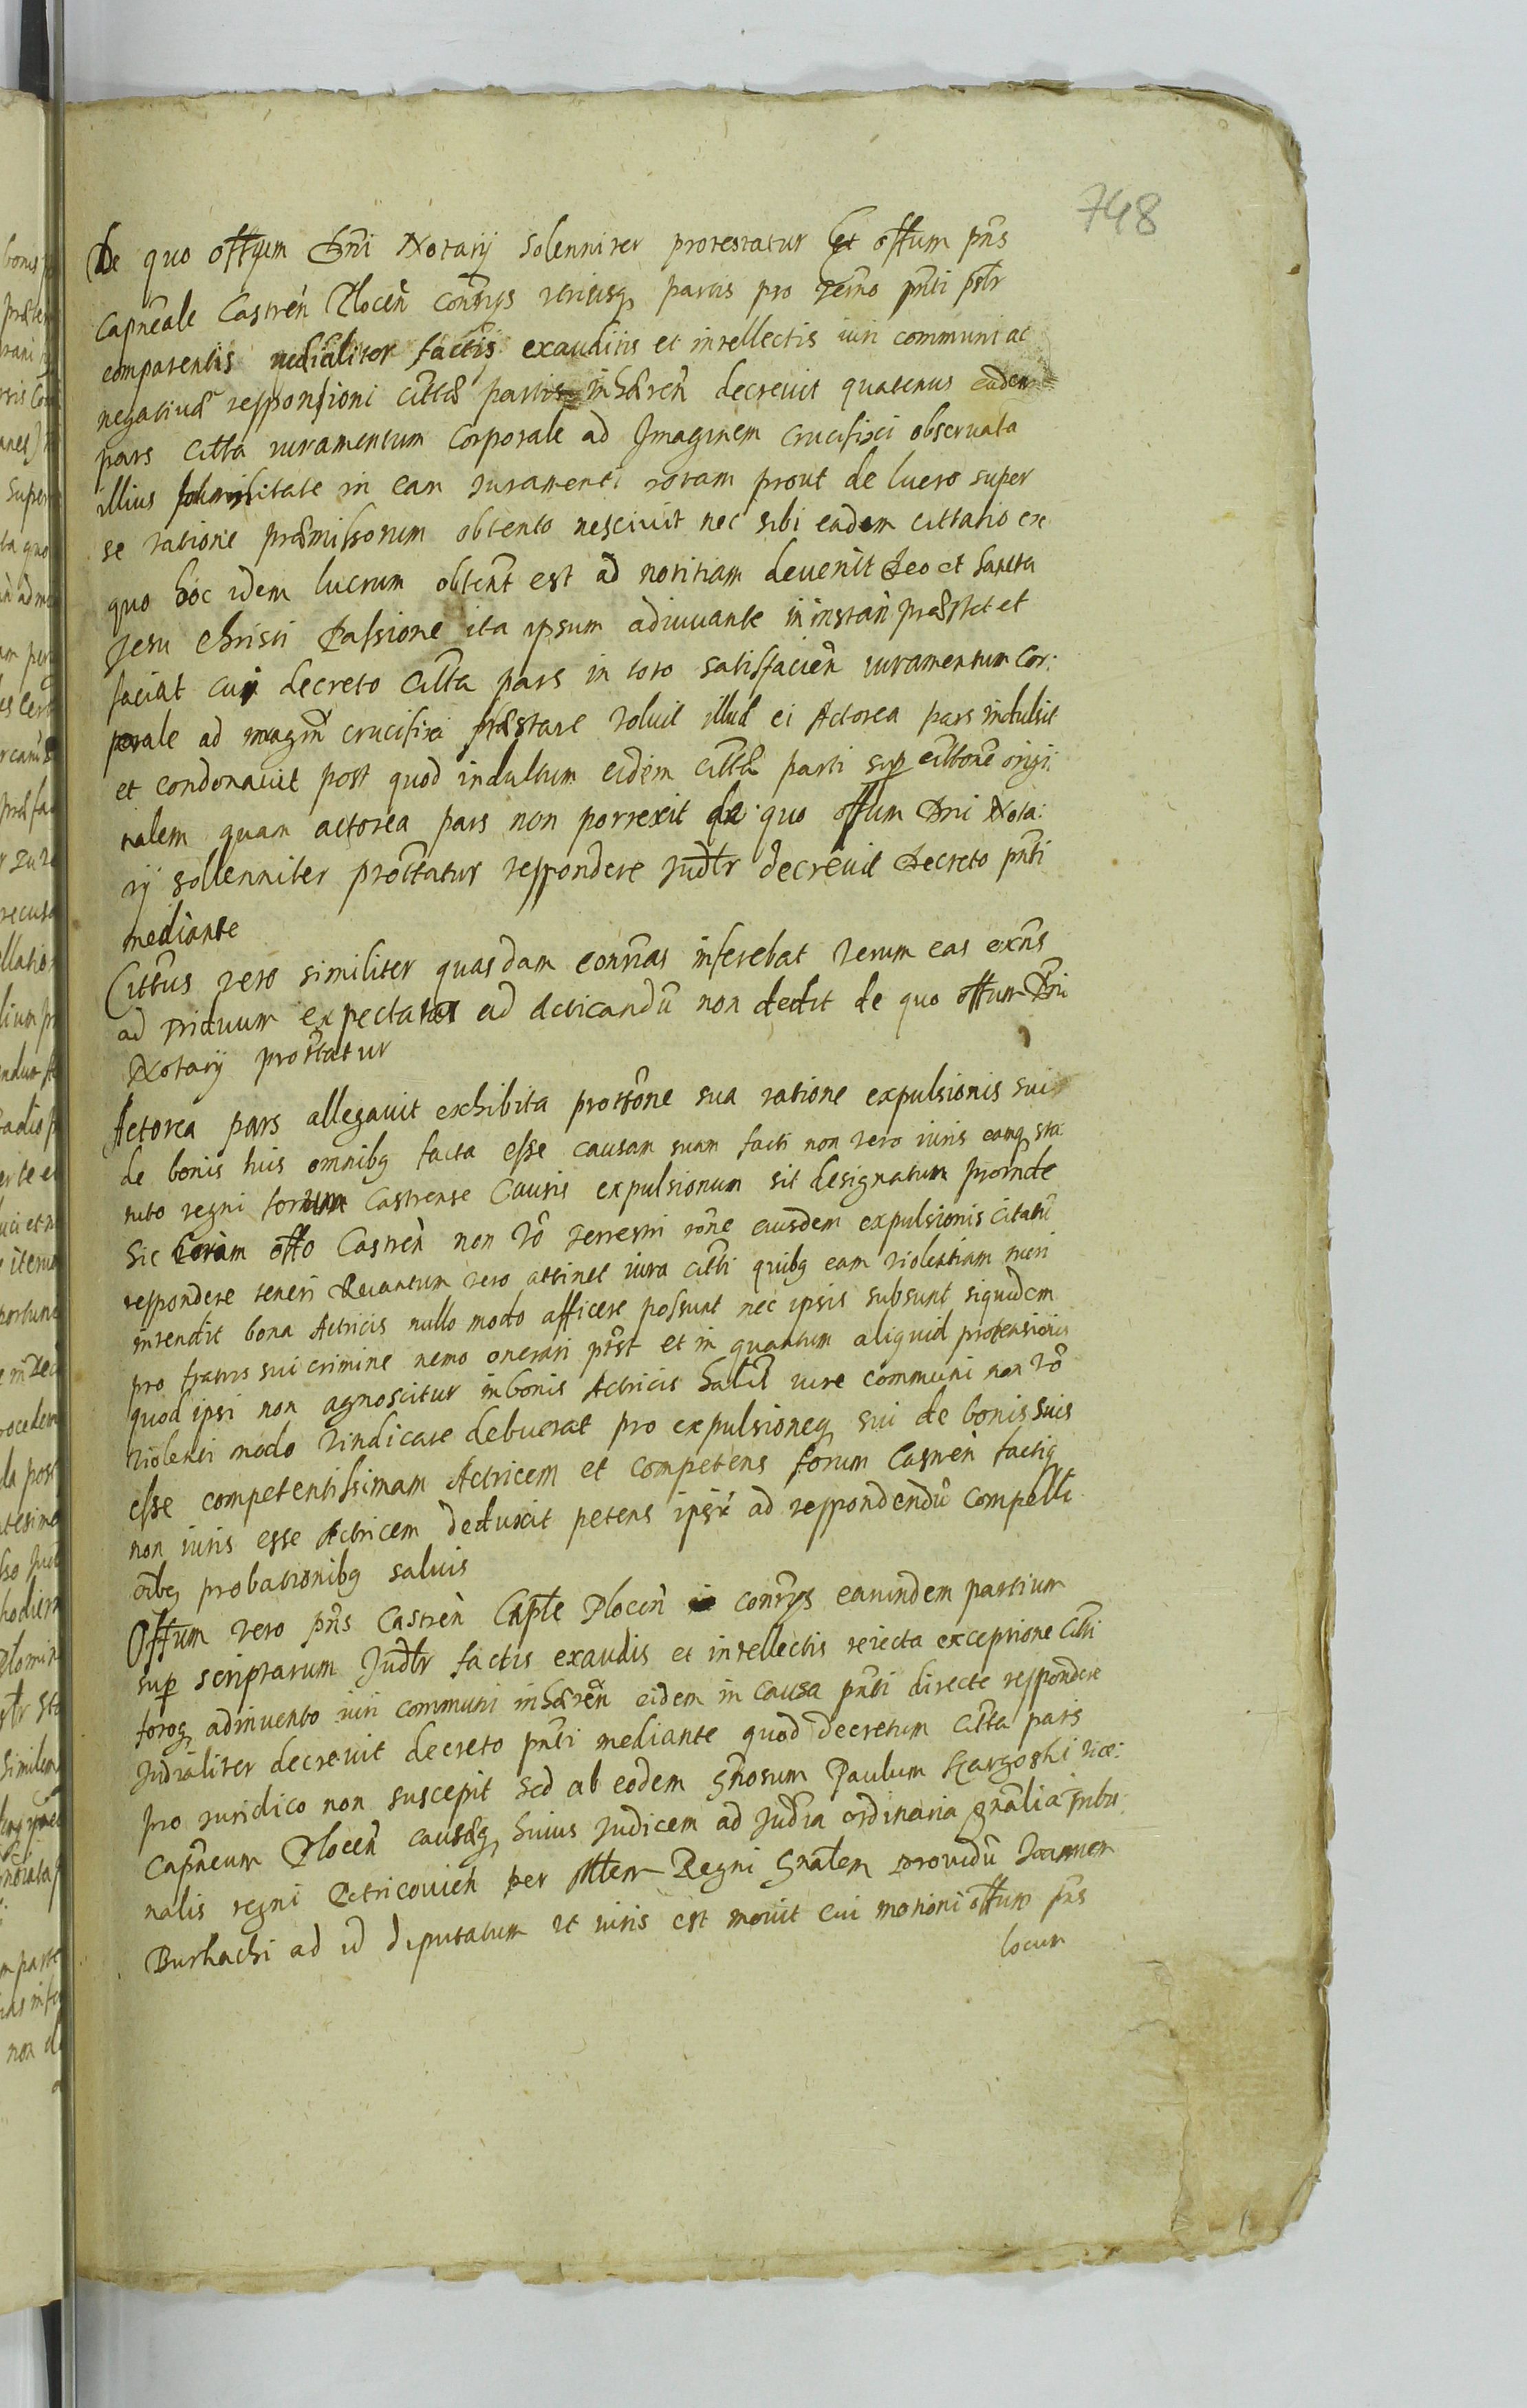 748
De quo offum Dni Notarij solenniter protestatur Et offum pns
Capneale Castren Plocen contrys utriusq partis pro termo pnti pstr
comparentis iudicialiter factis exauditis et intellectis iuri communi ac
negativae responsioni cittae partis inhaeren decrevit quatenus eadem
pars citta iuramentum corporale ad Imaginem crucifixi observata
illius in eam iuramenti rotam prout de lucro super
se ratione praemissorum obtento nescivit nec sibi eadem cittatio ex
quo hoc idem lucrum obtent est ad notitiam devenit Deo et Sancta
Jesu Christi Passione ita ipsum adiuvante in instan praestet et
faciat cui decreto citta pars in toto satisfacien iuramentum Cor:
porale ad imagin crucifixi praestare voluit illud ei Actorea pars indulsit
et condonavit post quod indultum eidem cittae parti sup cittone origi:
nalem quam actorea pars non porrexit de quo offum Dni Nota:
rij sollenniter prottatur respondere Judtr decrevit Decreto pnti
mediante
Cittus vero similiter quasdam contrias inferebat verum eas exns
ad triduum expectatus ad acticandu non dedit de quo offum Dni
Notarij prottatur
Actorea pars allegavit exhibita prottone sua ratione expulsionis sui
de bonis huis omnibq facta esse causam suam facti non vero iuris eamq sta
tuto regni forum Castrense Causis expulsionum sit designatum proinde
Sic Coram offo Castren non vo terrestri rone eiusdem expulsionis citatu
respondere teneri Quantum vero attinet iura citti quibq eam violentiam tueri
intendit bona Actricis nullo modo afficere possunt nec ipsis subsunt siquidem
pro fratris sui crimine nemo onerari ptst et in quantum aliquid protensionis
quod ipsi non agnoscitur in bonis Actricis habet iure communi non vo
violenti modo vindicare debuerat pro expulsioneq sui de bonis suis
esse competentissimam Actricem et competens forum Castren factiq
non iuris esse Actricem deduxit petens ipsu ad respondendu compelli
oibq probationibq salvis
Offum vero pns Castren Caple Plocen contrys earundem partium
sup scriptarum Judtr factis exaudis et intellectis reiecta exceptione citti
foroq adinvento iuri communi inhaeren eidem in causa pnti directe respondere
Judialiter decrevit decreto pnti mediante quod decretum citta pars
pro iuridico non suscepit sed ab eodem Gnosum Paulum Gargoski vice:
Capneum Plocen causaeq huius Judicem ad Judia ordinaria gnalia tribu:
nalis regni Petricovien per Mtem Regni Gnalem providu Joannem
Burhachi ad id deputatum ut iuris est movit cui motioni offum pns
locum